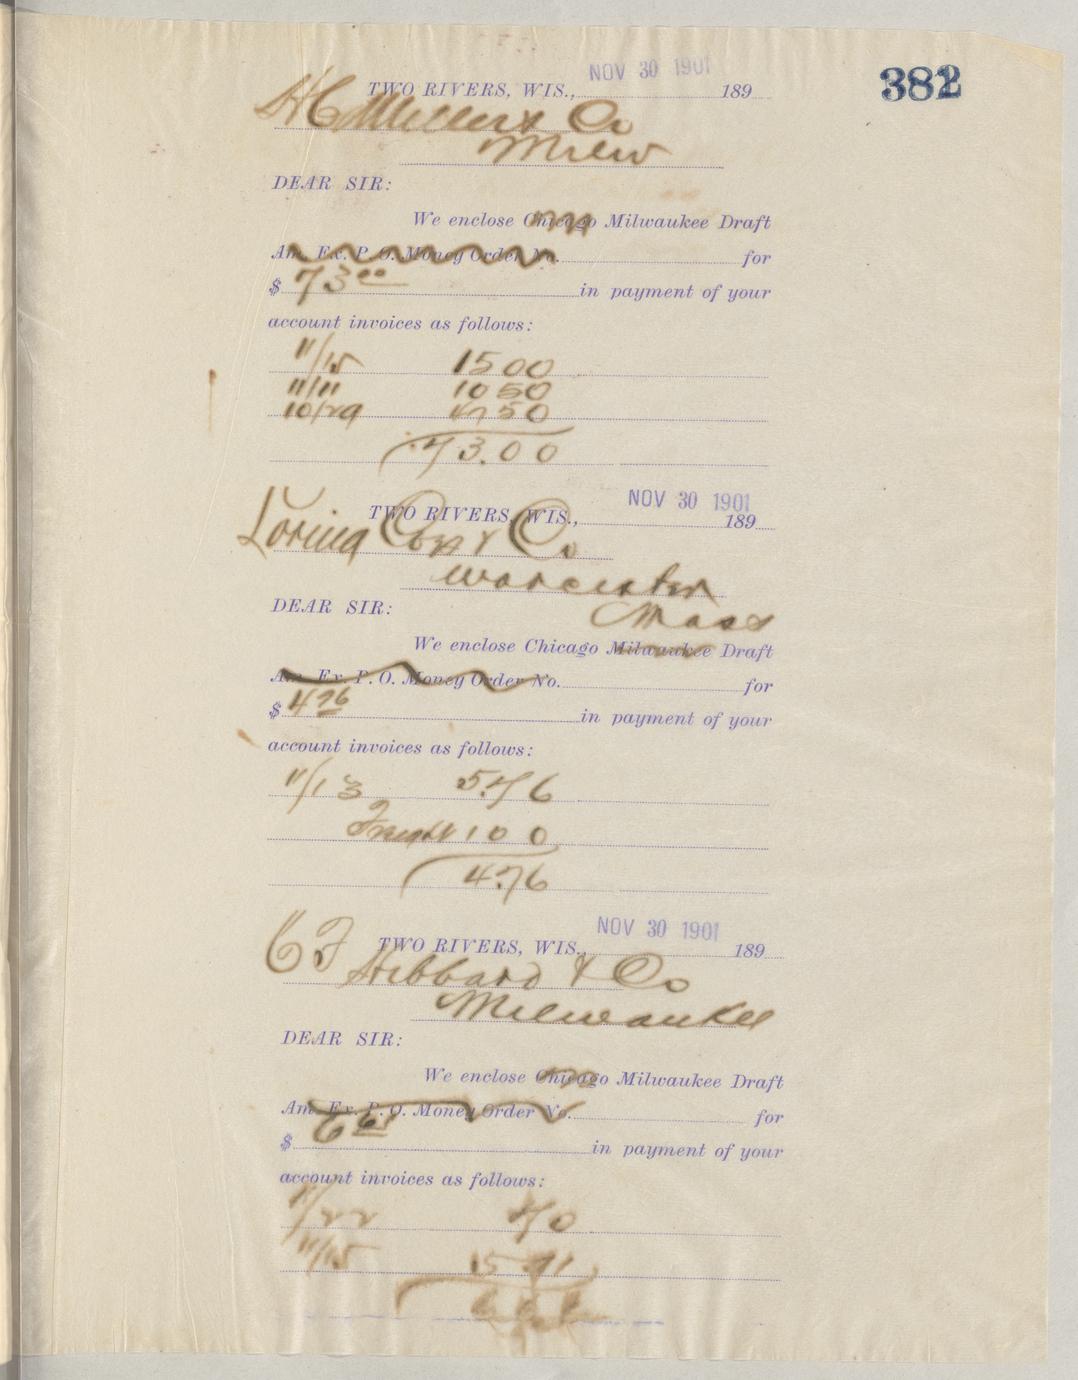 382
NOV 30 1901
TWO RIVERS, WIS., 189
H C Miller & Co
Milw
DEAR SIR:
We enclose Chicago Milwaukee Draft
Am. Ex. P. O. Money Order No. for
$ 73 00 in payment of your
account invoices as follows:
11/15 15 00
11/11 10 50
10/29 47 50
73.00
NOV 30 1901
TWO RIVERS, WIS., 189
Loring Coes & Co
Worcester
Mass
DEAR SIR:
We enclose Chicago Milwaukee Draft
Am. Ex. P. O. Money Order No. for
$ 4 76 in payment of your
account invoices as follows:
11/13 5.76
Freight 1 0 0
4.76
NOV 30 1901
TWO RIVERS, WIS., 189
Hibbard & Co
Milwaukee
DEAR SIR:
We enclose Chicago Milwaukee Draft
Am. Ex. P. O. Money Order No. for
$ in payment of your
account invoices as follows:
11/22 70
11/15